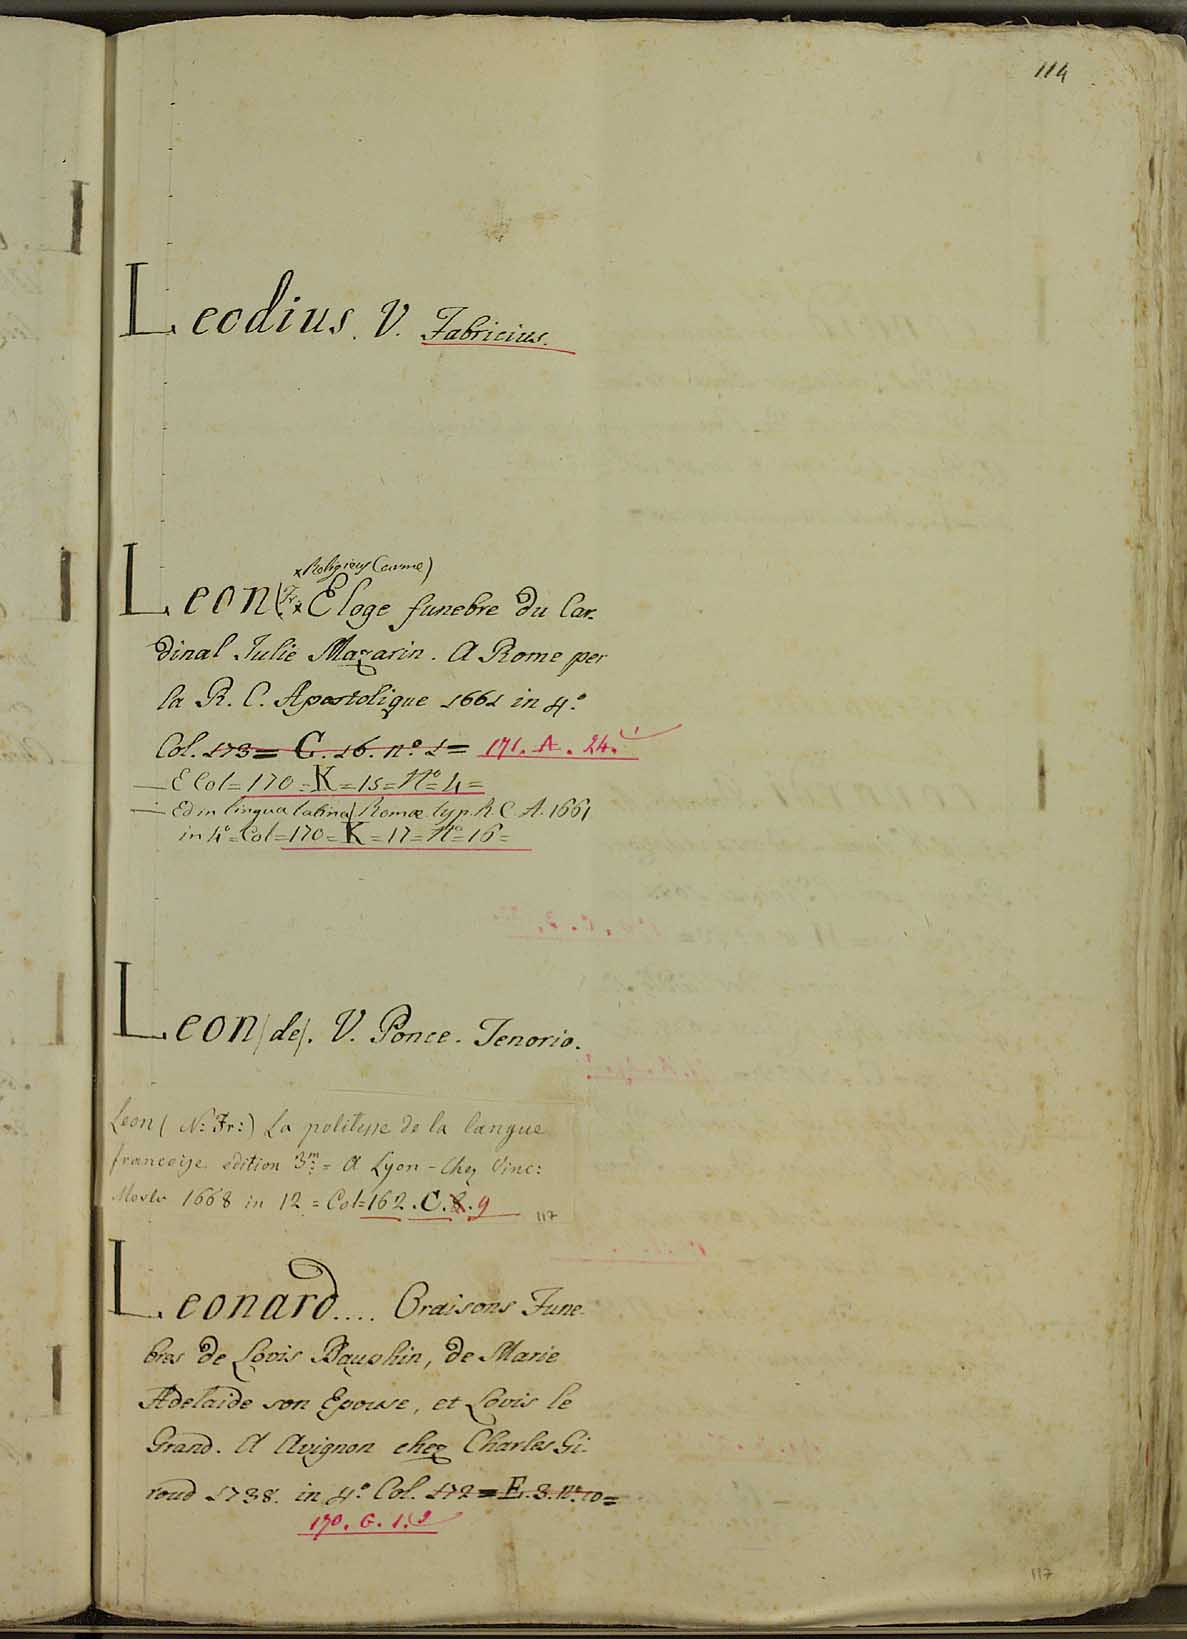 114
Leodius. V. Fabricius.
x Religieux Carme)
Leon (Fr. x Eloge funebre du Car-
dinal Julie Mazarin. A Rome per
la R. C. Apostolique 1661 in 4.º
Col. 173 = C. 16. nº 1 = 171. A. 24.
— E Col = 170 = K = 15 = Nº = 4 =
— Ed in lingua latina/ Romæ typ. R. C. A. 1661
in 4º = Col = 170 = K = 17 = Nº = 16 =
Leon (de). V. Ponce. Tenorio.
Leon ( N: Fr: ) La politesse de la langue
françoise edition 3.m = A Lyon - Chez Vinc:
1668 in 12 = Col = 162 . C. 8. 9
117
Leonard.... Oraisons Fune-
bres de Lovis Dauphin, de Marie
Adelaide son Epouse, et Lovis le
Grand. A Avignon chez Charles Gi-
roud 1738. in 4.º Col. 172 = E. 3. nº 10 =
170. G. 1. 2
117